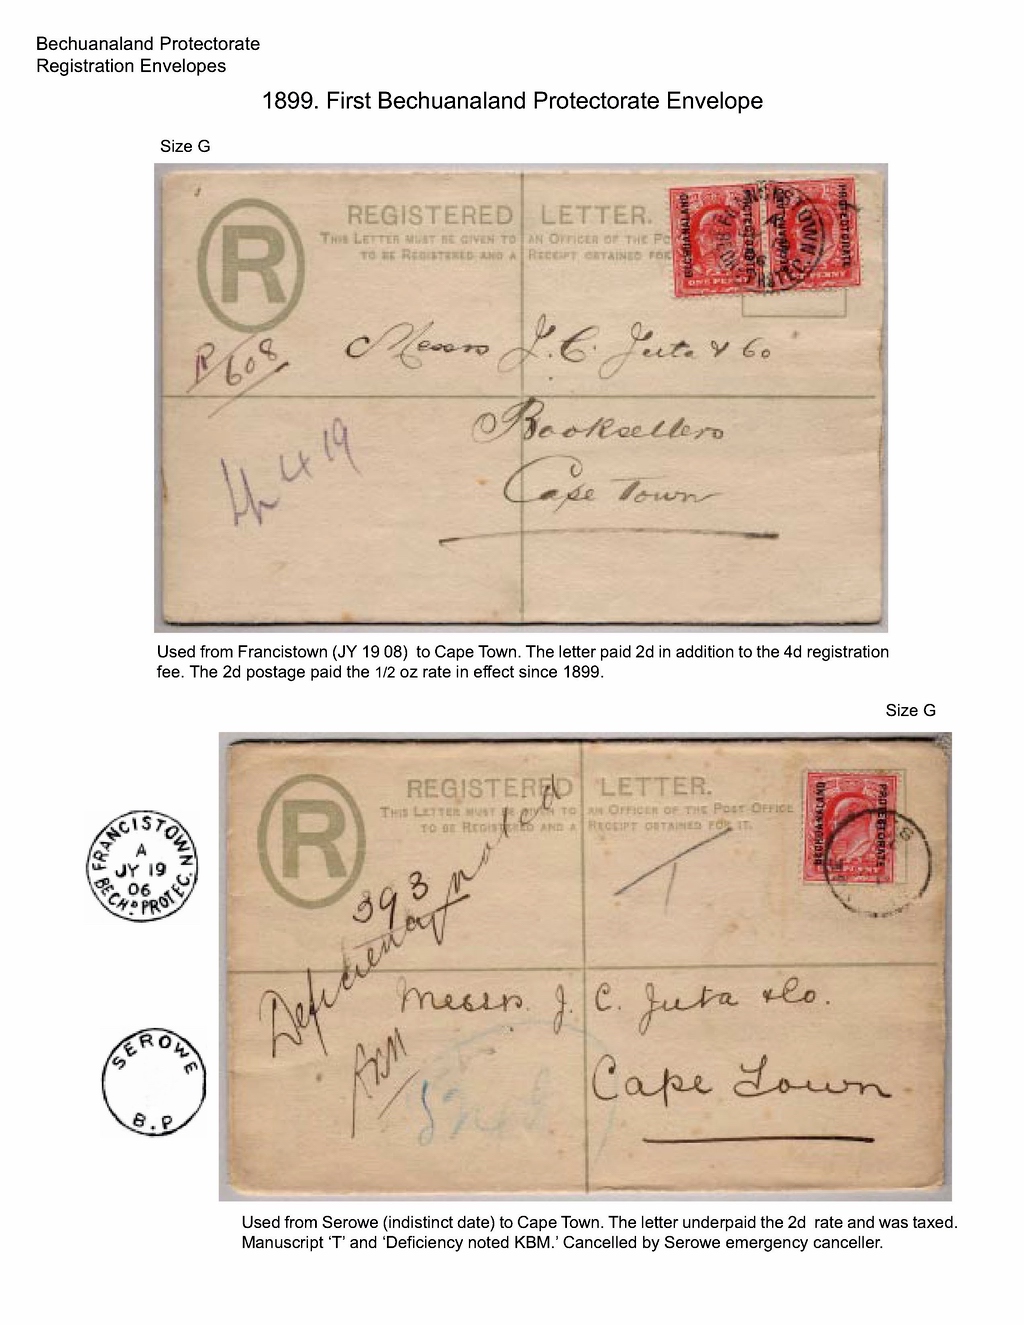 Bechuanaland Protectorate
Registration Envelopes
1899. First Bechuanaland Protectorate Envelope
Size G
R
REGISTERED LETTER.
THIS LETTER MUST BE GIVEN TO AN OFFICER OF THE PO
TO BE REGISTERED AND A RECEIPT OBTAINED FOR
BECHUANALAND PROTECTORATE
BECHUANALAND PROTECTORATE
ONE PENNY
R/608
Messrs J. C. Juta & Co
Booksellers
Cape Town
419
Used from Francistown (JY 19 08) to Cape Town. The letter paid 2d in addition to the 4d registration
fee. The 2d postage paid the 1/2 oz rate in effect since 1899.
Size G
R
REGISTERED LETTER.
THIS LETTER MUST BE GIVEN TO AN OFFICER OF THE POST OFFICE
TO BE REGISTERED AND A RECEIPT OBTAINED FOR IT.
BECHUANALAND PROTECTORATE
T
393
Deficiency noted
KBM
Messrs. J. C. Juta & Co.
Cape Town
FRANCISTOWN
A
JY 19
06
BECHD PROTEC.
SEROWE
B.P
Used from Serowe (indistinct date) to Cape Town. The letter underpaid the 2d rate and was taxed.
Manuscript ‘T’ and ‘Deficiency noted KBM.’ Cancelled by Serowe emergency canceller.